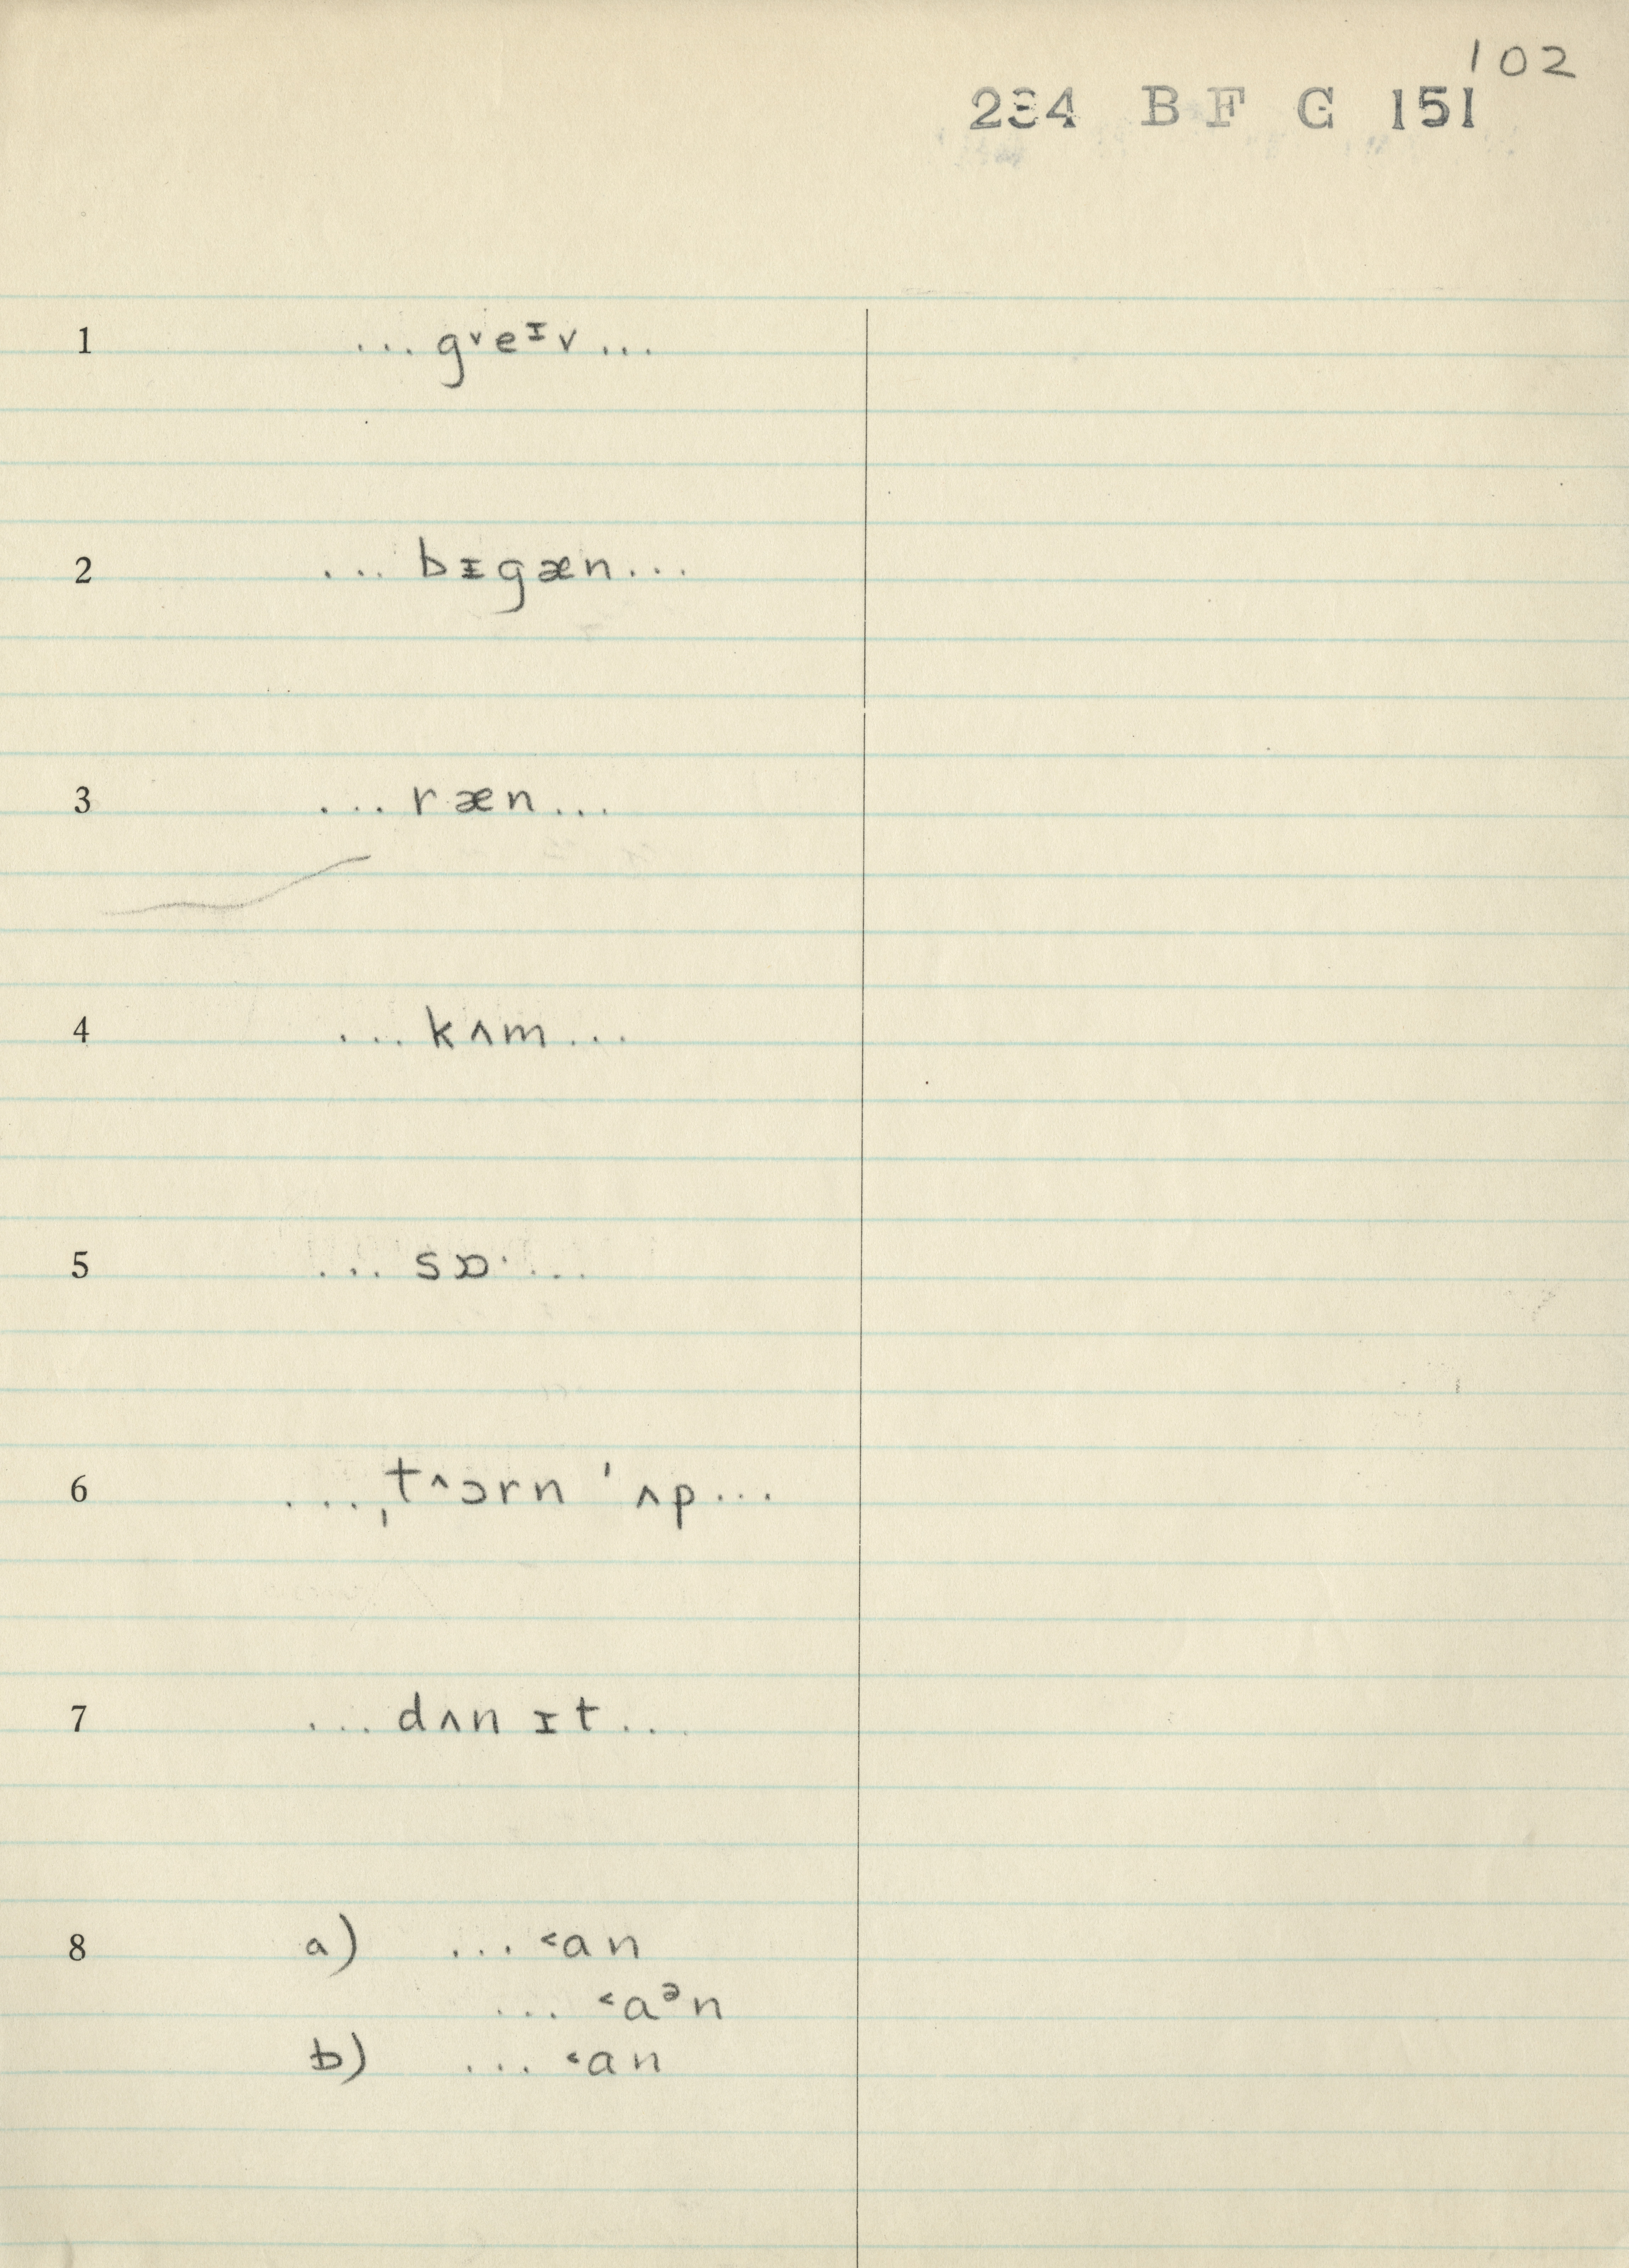 102
234 B F G 151
1 ... gᵛeᶦv ...
2 ... bɪgæn ...
3 ... ræn ...
4 ... kʌm ...
5 ... sɒ· ...
6 ... ˌt^ɔrn ˈʌp ...
7 ... dʌn ɪt ...
8 a) ... ˂an
... ˂aᵊn
b) ... ˂an